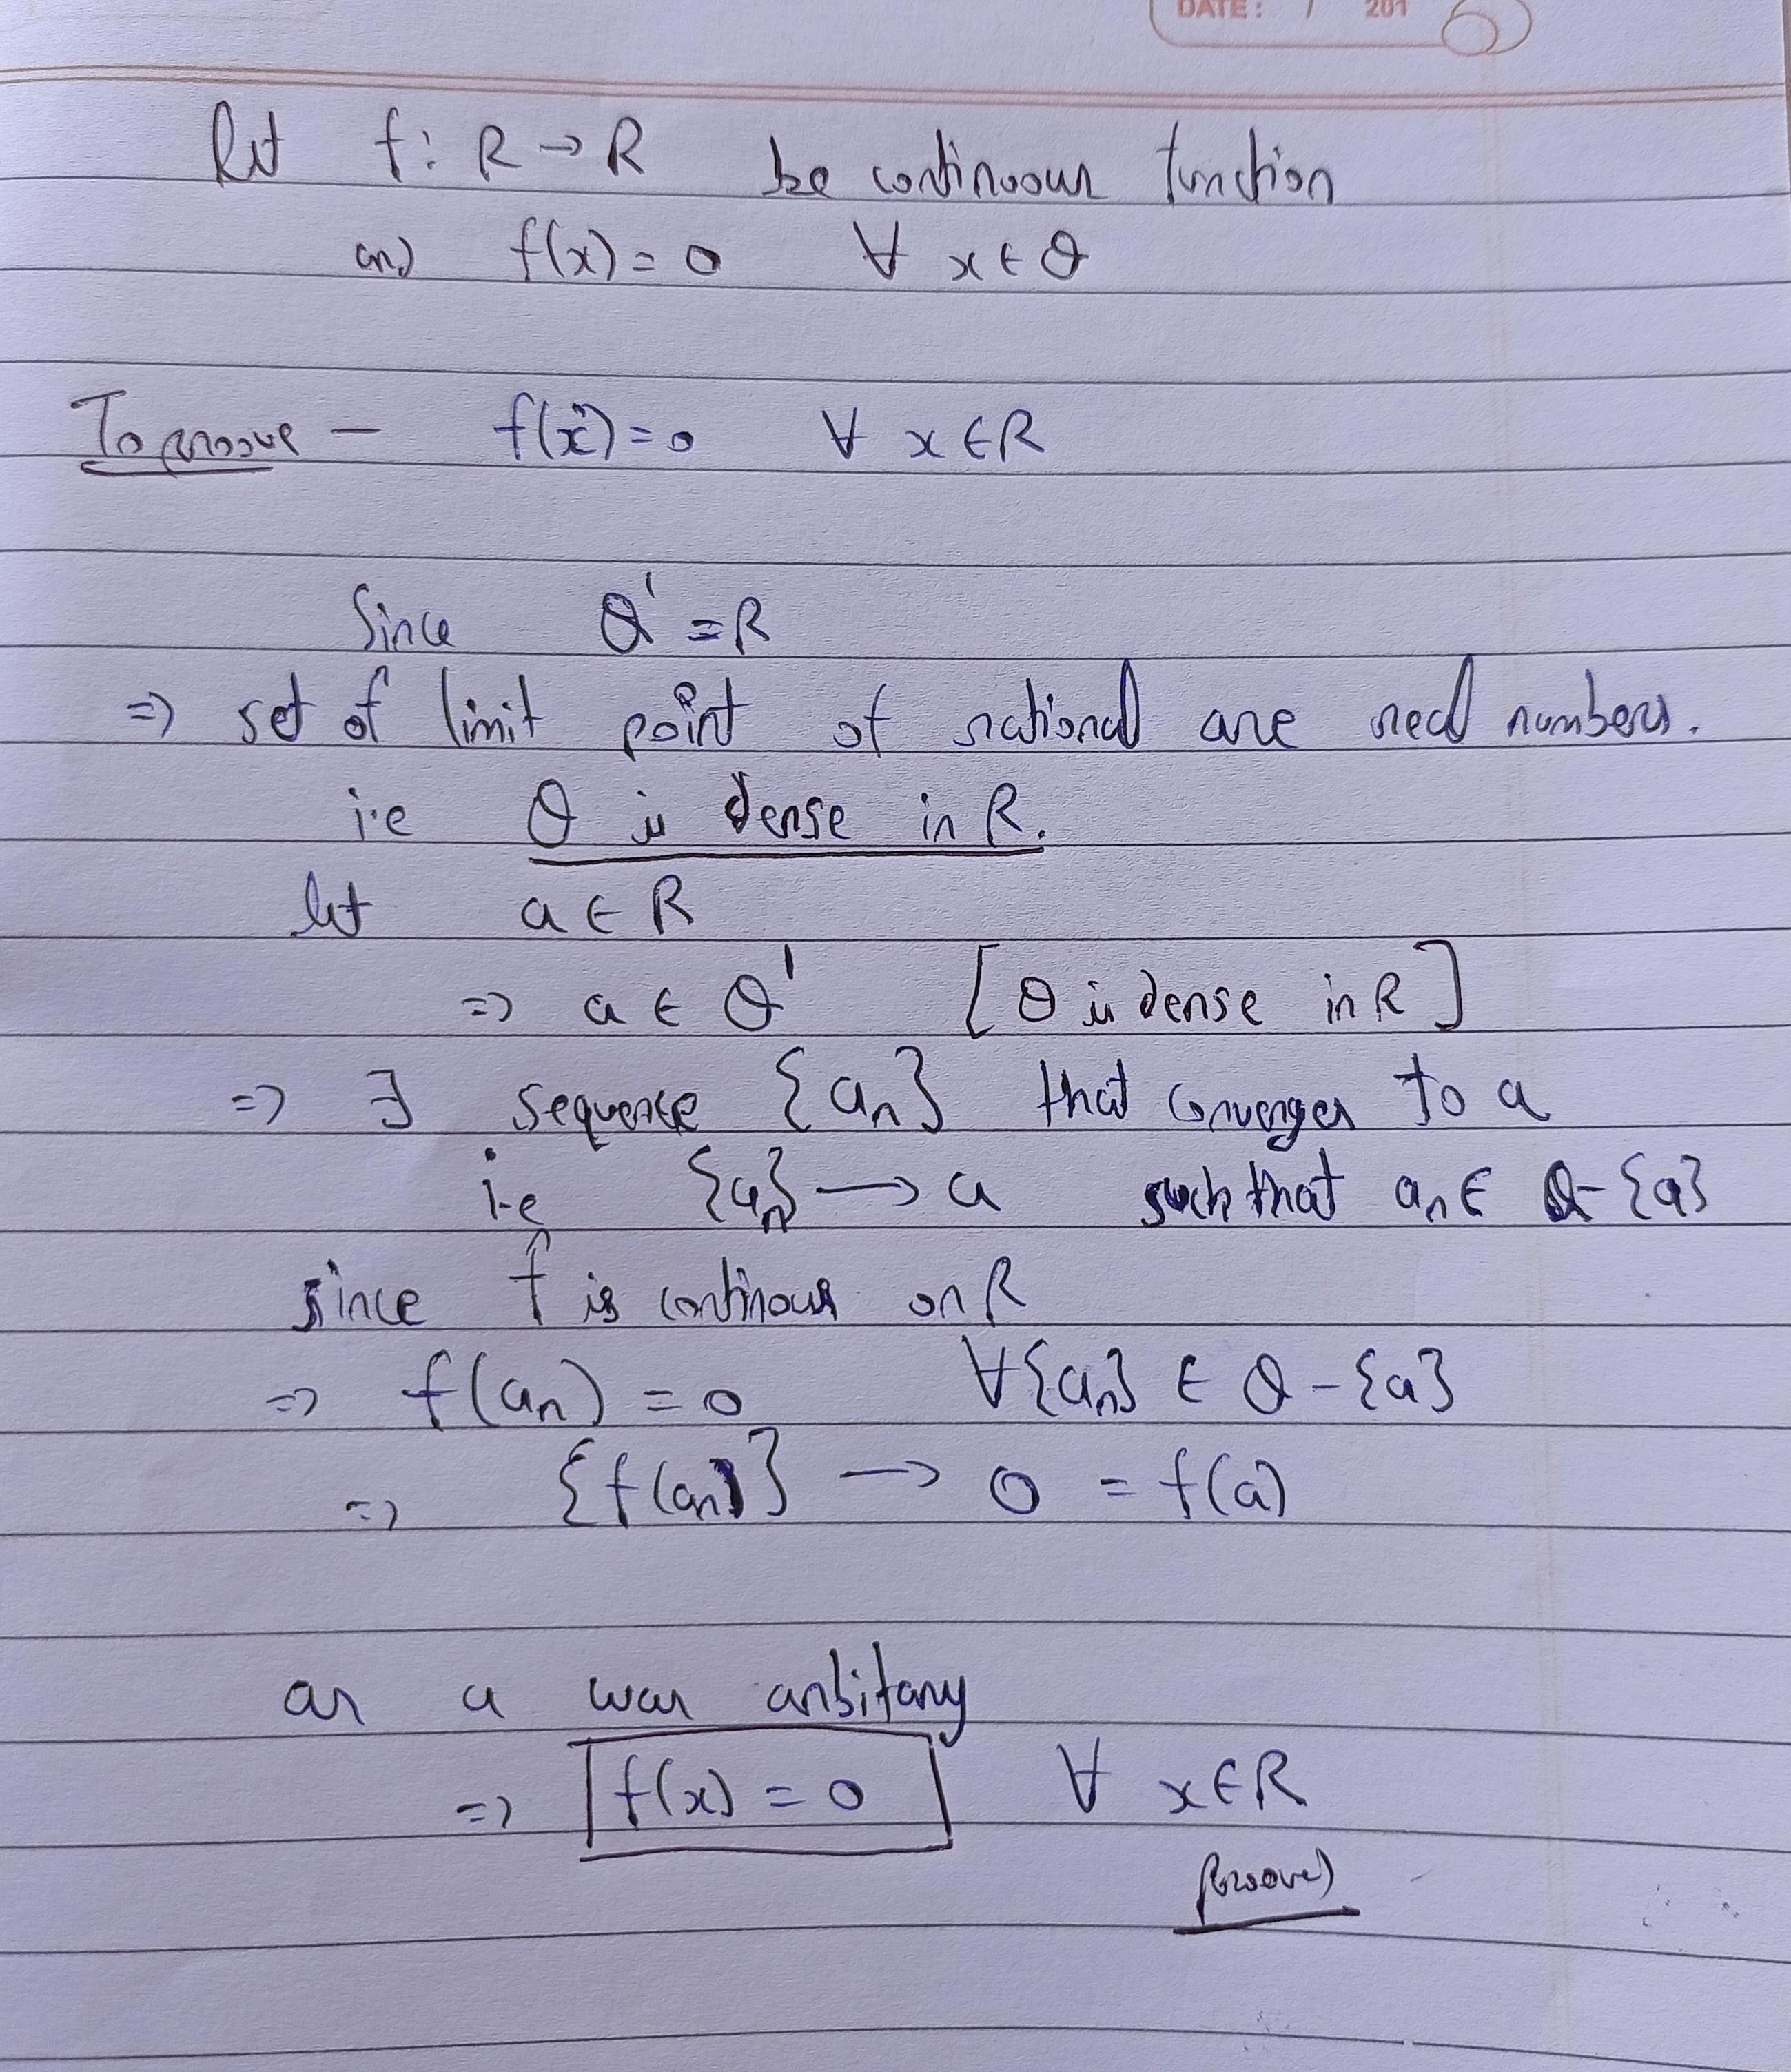 DATE: / 201
let f: R → R be continuous function
and f(x) = 0 ∀ x ∈ Q
To proove — f(x) = 0 ∀ x ∈ R
Since Q' = R
⇒ set of limit point of rational are real numbers.
i.e Q is dense in R.
let a ∈ R
⇒ a ∈ Q' [Q is dense in R]
⇒ ∃ sequence {aₙ} that converges to a
i.e {aₙ} → a such that aₙ ∈ Q - {a}
since f is continous on R
⇒ f(aₙ) = 0 ∀{aₙ} ∈ Q - {a}
⇒ {f(aₙ)} → 0 = f(a)
as a was arbitary
⇒ f(x) = 0 ∀ x ∈ R
Prooved